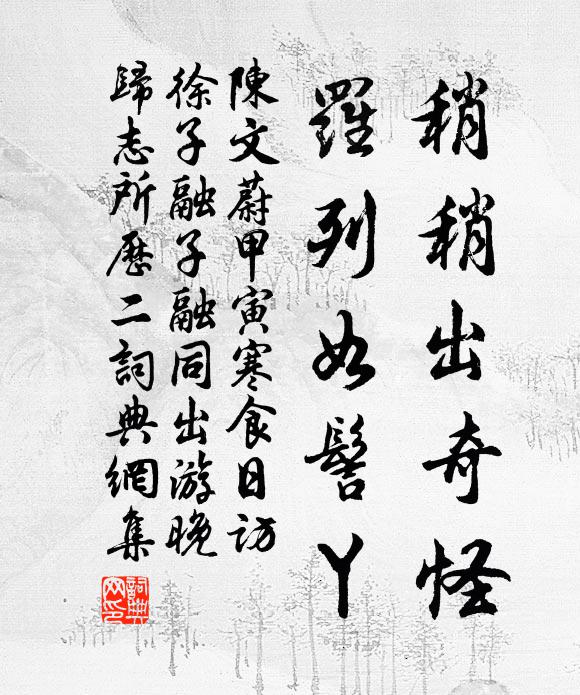 稍稍出奇怪
羅列如髻丫
陳文蔚甲寅寒食日訪
徐子融子融同出游晚
歸志所歷二詞典網集
詞典
网印